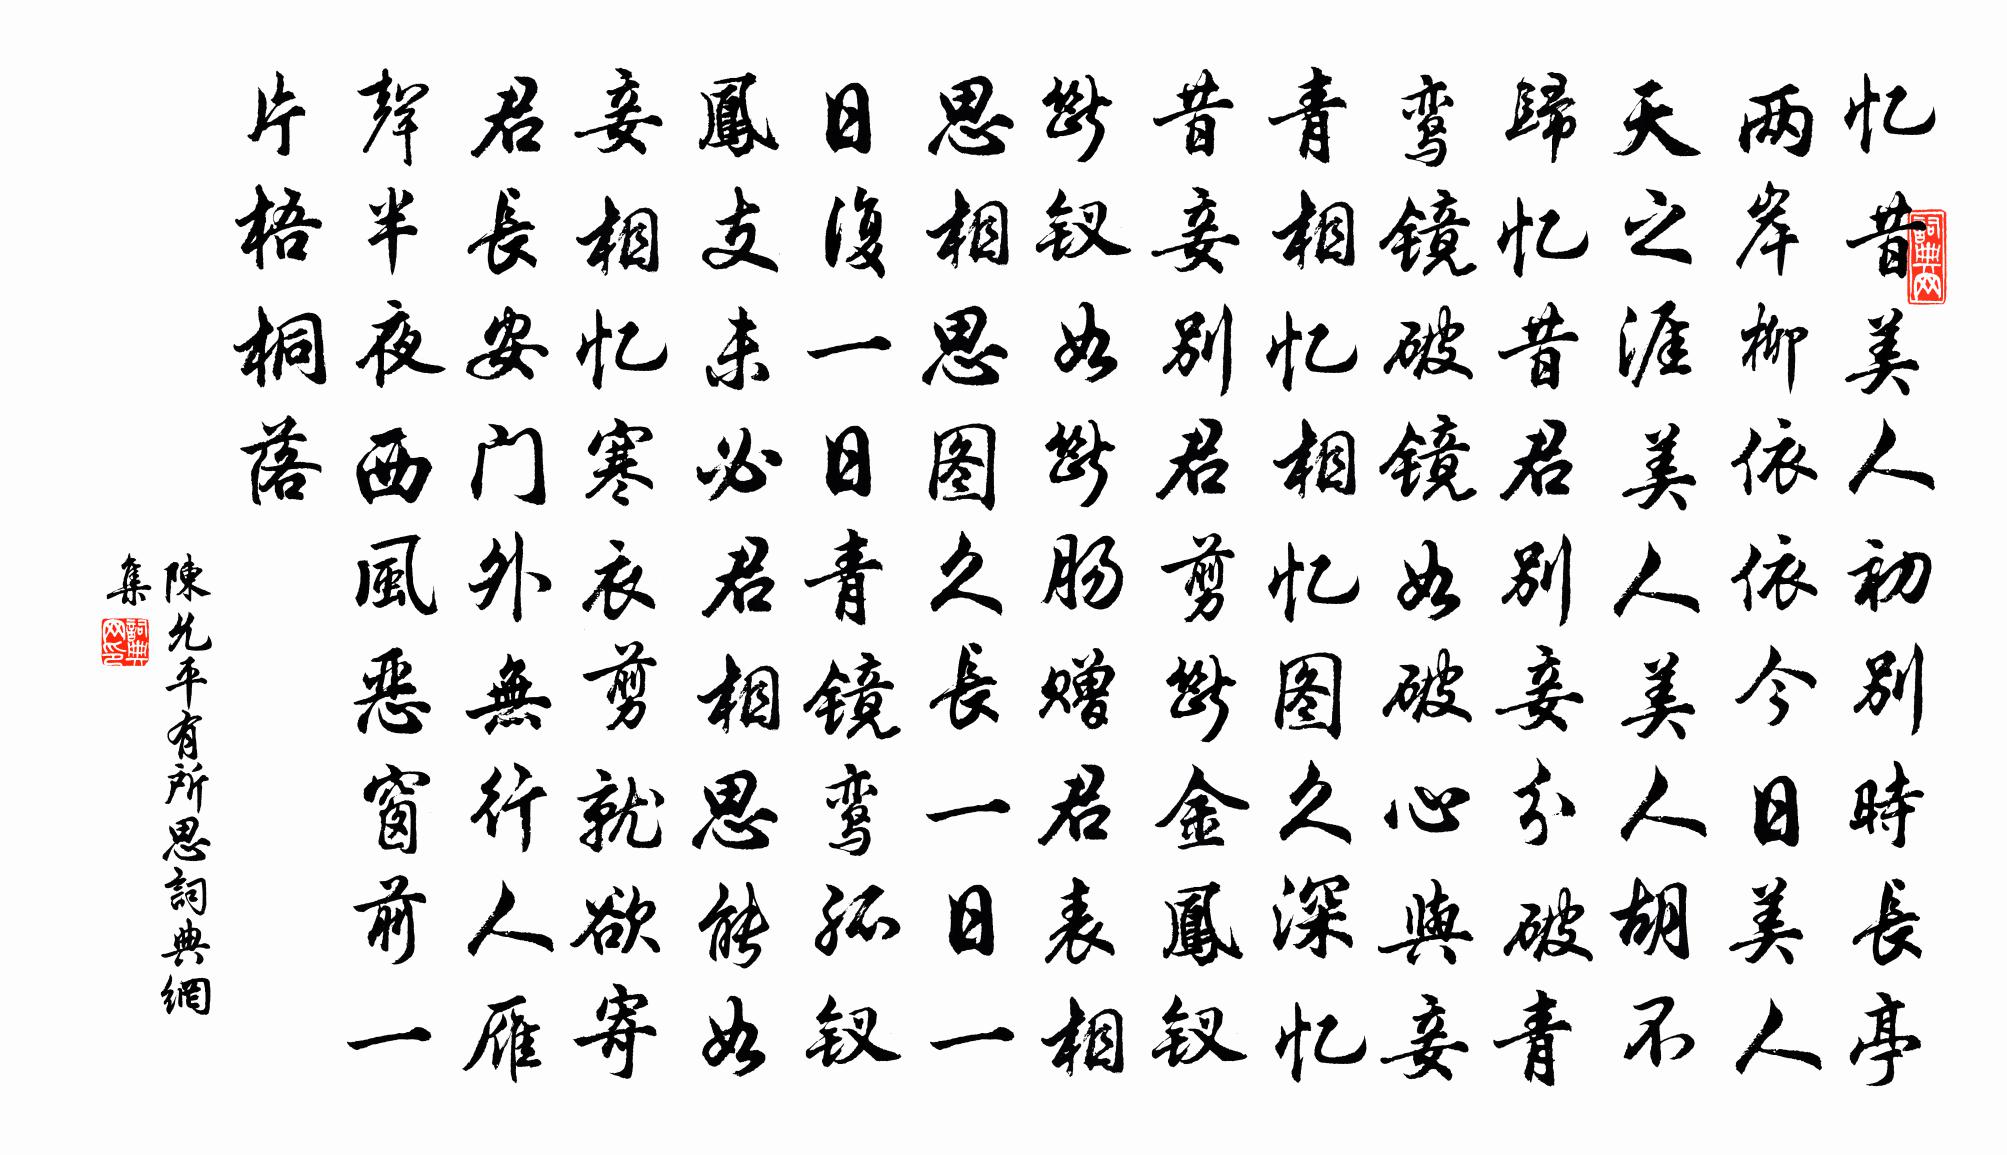 忆昔美人初别時長亭
两岸柳依依今日美人
天之涯美人美人胡不
歸忆昔君别妾分破青
鸾镜破镜如破心與妾
青相忆相忆图久深忆
昔妾别君剪斷金鳳钗
斷钗如斷肠赠君表相
思相思图久長一日一
日復一日青镜鸾孤钗
鳳支未必君相思能如
妾相忆寒衣剪就欲寄
君長安门外無行人雁
聲半夜西風恶窗前一
片梧桐落
陳允平有所思詞典網
集
詞典网
詞典网印